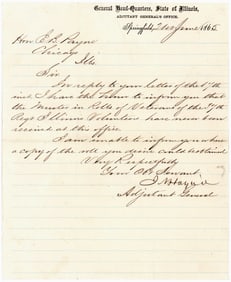 General Head-Quarters, State of Illinois,
ADJUTANT GENERAL'S OFFICE,
Springfield, June 1865
Hon E B Payne
Chicago
Ills.
Sir
In reply to your letter of the 17th
inst I have the honor to inform you that
the Muster in Rolls of Veterans of the 37th
Regt Illinois Volunteers have never been
received at this office.
I am unable to inform you where
a copy of the roll you desire could be obtained
Very Respectfully
Your Obt Servant
Adjutant General